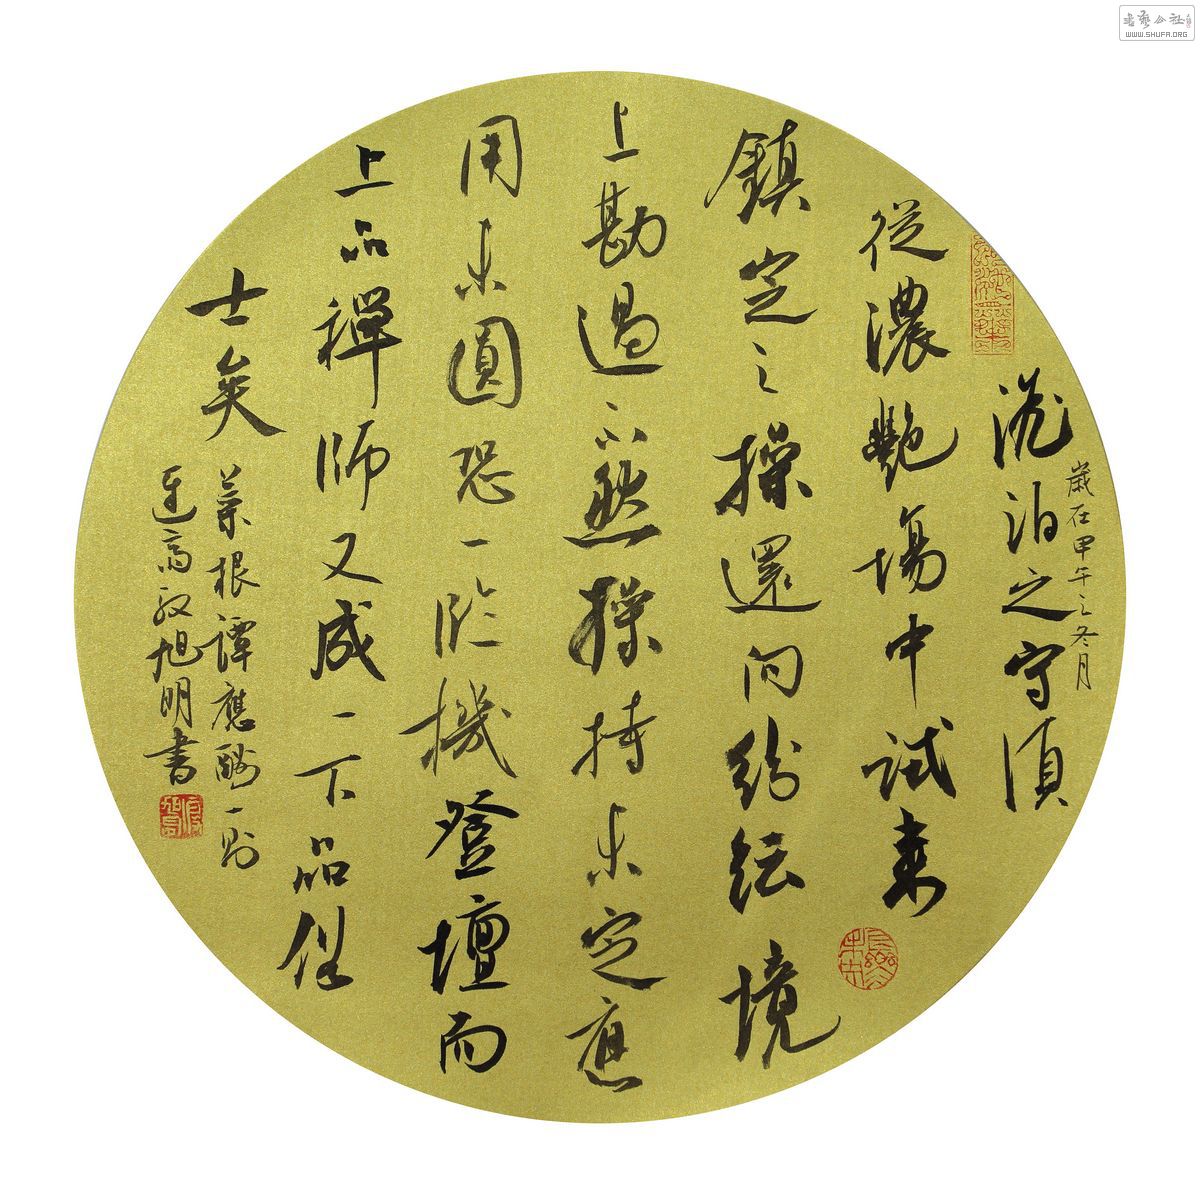 澹泊之守須
歲在甲午之冬月
從濃艷場中試來
鎮定之操還向紛紜境
上勘過不然操持未定應
用未圓恐一臨機登壇而
上品禪師又成一下品俗
士矣
菜根譚應酬一則
旭明書
書藝公社
WWW.SHUFA.ORG